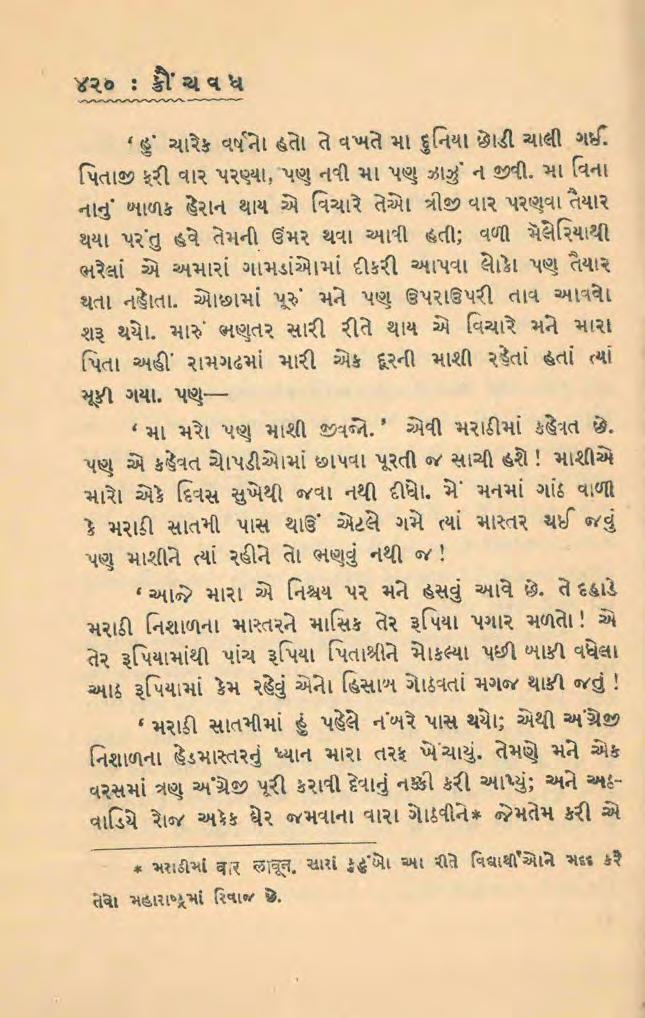 ૪૨૦ : ક્રૌંચવધ
‘ હું ચારેક વર્ષનો હતો તે વખતે મા દુનિયા છોડી ચાલી ગઈ.
પિતાજી ફરી વાર પરણ્યા, પણ નવી મા પણ ઝાઝું ન જીવી. મા વિના
નાનું બાળક હેરાન થાય એ વિચારે તેઓ ત્રીજી વાર પરણવા તૈયાર
થયા પરંતુ હવે તેમની ઉંમર થવા આવી હતી; વળી મૅલેરિયાથી
ભરેલાં એ અમારાં ગામડાંઓમાં દીકરી આપવા લોકો પણ તૈયાર
થતા નહોતા. ઓછામાં પૂરું મને પણ ઉપરાઉપરી તાવ આવવો
શરૂ થયો. મારું ભણતર સારી રીતે થાય એ વિચારે મને મારા
પિતા અહીં રામગઢમાં મારી એક દૂરની માશી રહેતાં હતાં ત્યાં
મૂકી ગયા. પણ—
‘ મા મરો પણ માશી જીવજો. ’ એવી મરાઠીમાં કહેવત છે.
પણ એ કહેવત ચોપડીઓમાં છાપવા પૂરતી જ સાચી હશે ! માશીએ
મારો એકે દિવસ સુખેથી જવા નથી દીધો. મેં મનમાં ગાંઠ વાળી
કે મરાઠી સાતમી પાસ થાઉં એટલે ગમે ત્યાં માસ્તર થઈ જવું
પણ માશીને ત્યાં રહીને તો ભણવું નથી જ !
‘ આજે મારા એ નિશ્ચય પર મને હસવું આવે છે. તે દહાડે
મરાઠી નિશાળના માસ્તરને માસિક તેર રૂપિયા પગાર મળતો ! એ
તેર રૂપિયામાંથી પાંચ રૂપિયા પિતાશ્રીને મોકલ્યા પછી બાકી વધેલા
આઠ રૂપિયામાં કેમ રહેવું એનો હિસાબ ગોઠવતાં મગજ થાકી જતું !
‘ મરાઠી સાતમીમાં હું પહેલે નંબરે પાસ થયો; એથી અંગ્રેજી
નિશાળના હેડમાસ્તરનું ધ્યાન મારા તરફ ખેંચાયું. તેમણે મને એક
વરસમાં ત્રણ અંગ્રેજી પૂરી કરાવી દેવાનું નક્કી કરી આપ્યું; અને અઠ-
વાડિયે રોજ અકેક ઘેર જમવાના વારા ગોઠવીને* જેમતેમ કરી એ
* મરાઠીમાં वार लावून. સારાં કુટુંબો આ રીતે વિદ્યાર્થીઓને મદદ કરે
તેવો મહારાષ્ટ્રમાં રિવાજ છે.